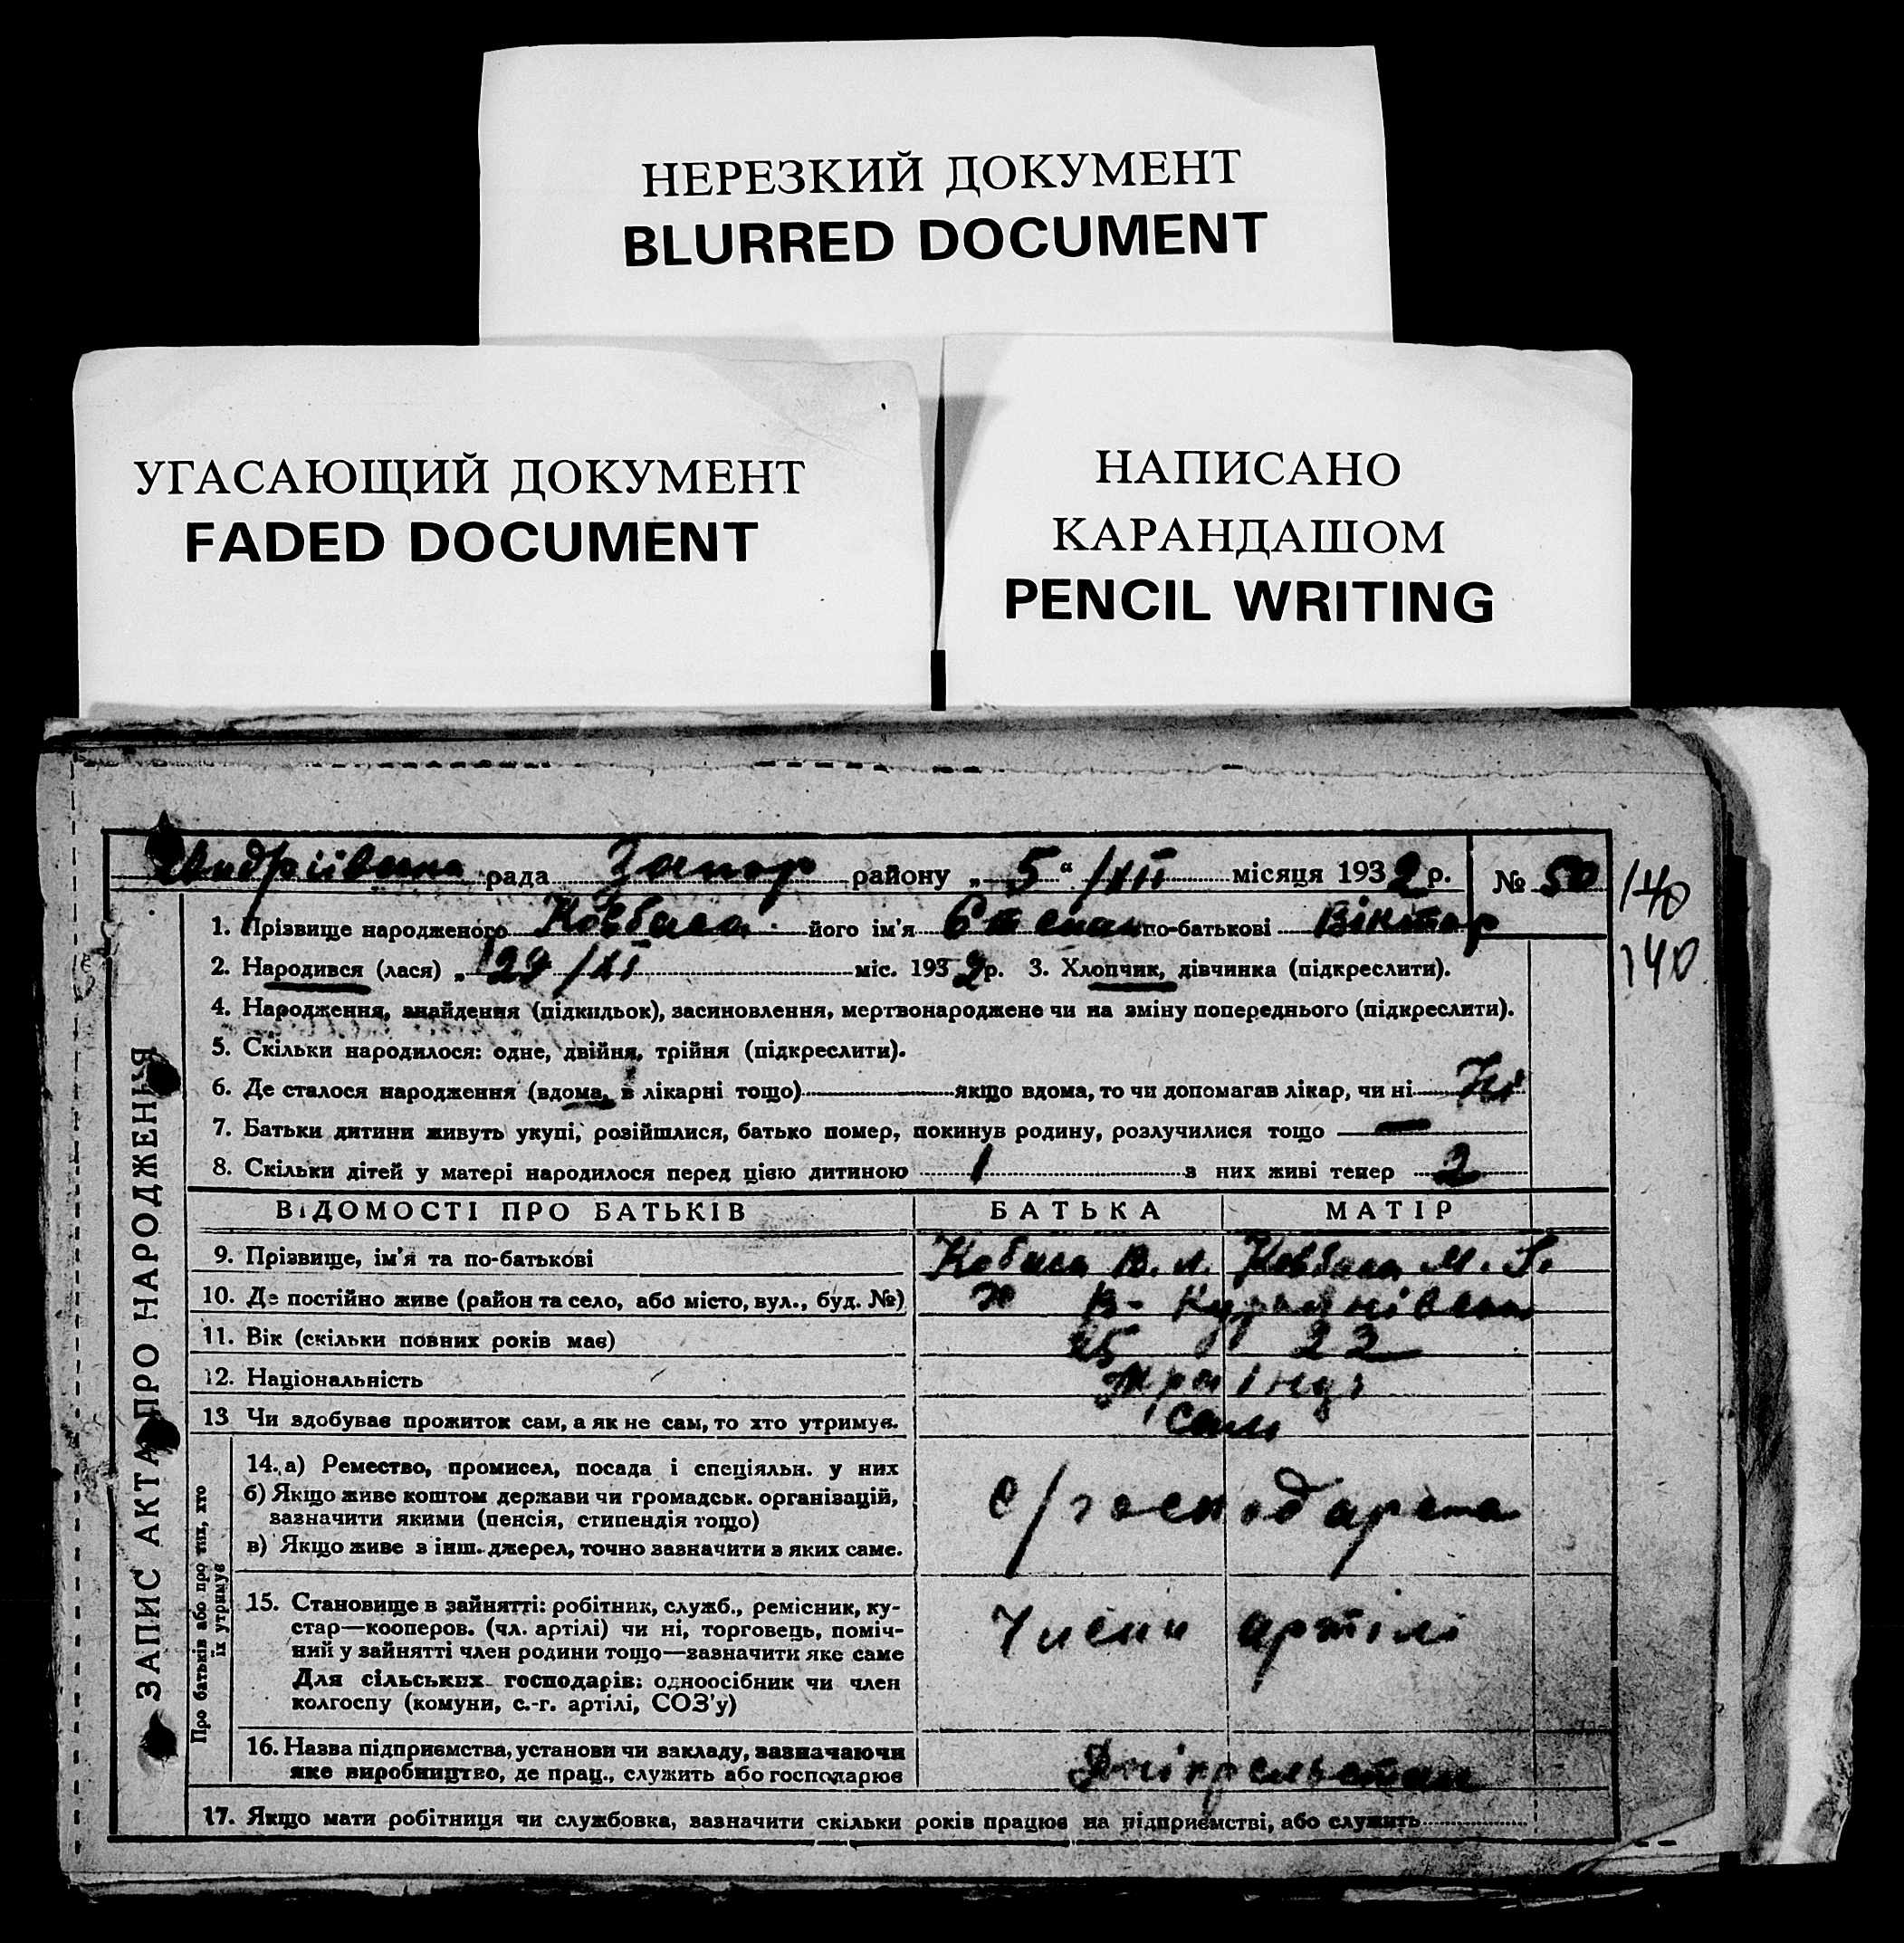 НЕРЕЗКИЙ ДОКУМЕНТ
BLURRED DOCUMENT
УГАСАЮЩИЙ ДОКУМЕНТ
FADED DOCUMENT
НАПИСАНО
КАРАНДАШОМ
PENCIL WRITING
рада Запор району „5“ /XII місяця 1932 р. № 50
140
1. Прізвище народженого Ковбаса його ім'я Степан по-батькові Віктор
2. Народився (лася) „ 29 /XI міс. 1932 р. 3. Хлопчик, дівчинка (підкреслити).
140
4. Народження, знайдення (підкидьок), засиновлення, мертвонароджене чи на зміну попереднього (підкреслити).
5. Скільки народилося: одне, двійня, трійня (підкреслити).
6. Де сталося народження (вдома, в лікарні тощо) якщо вдома, то чи допомагав лікар, чи ні Ні
7. Батьки дитини живуть укупі, розійшлися, батько помер, покинув родину, розлучилися тощо —
8. Скільки дітей у матері народилося перед цією дитиною 1 з них живі тепер 2
ВІДОМОСТІ ПРО БАТЬКІВ БАТЬКА МАТІР
9. Прізвище, ім'я та по-батькові Кобаса В. Л. Ковбаса М.
10. Де постійно живе (район та село, або місто, вул., буд. №) В-
11. Вік (скільки повних років має) 25 22
12. Національність
13 Чи здобуває прожиток сам, а як не сам, то хто утримує. Сами
14. а) Ремество, промисел, посада і спеціяльн. у них
б) Якщо живе коштом держави чи громадськ. організацій,
зазначити якими (пенсія, стипендія тощо)
с/господарства
в) Якщо живе з інш. джерел, точно зазначити з яких саме.
15. Становище в зайнятті: робітник, служб., ремісник, ку-
стар—кооперов. (чл. артілі) чи ні, торговець, поміч-
ний у зайнятті член родини тощо—зазначити яке саме
Члени артілі
Для сільських господарів: одноосібник чи член
колгоспу (комуни, с.-г. артілі, СОЗ'у)
16. Назва підприємства, установи чи закладу, зазначаючи
яке виробництво, де прац., служить або господарює
17. Якщо мати робітниця чи службовка, зазначити скільки років працює на підприємстві, або служить
ЗАПИС АКТА ПРО НАРОДЖЕННЯ
Про батьків або про тих, хто
їх утримує